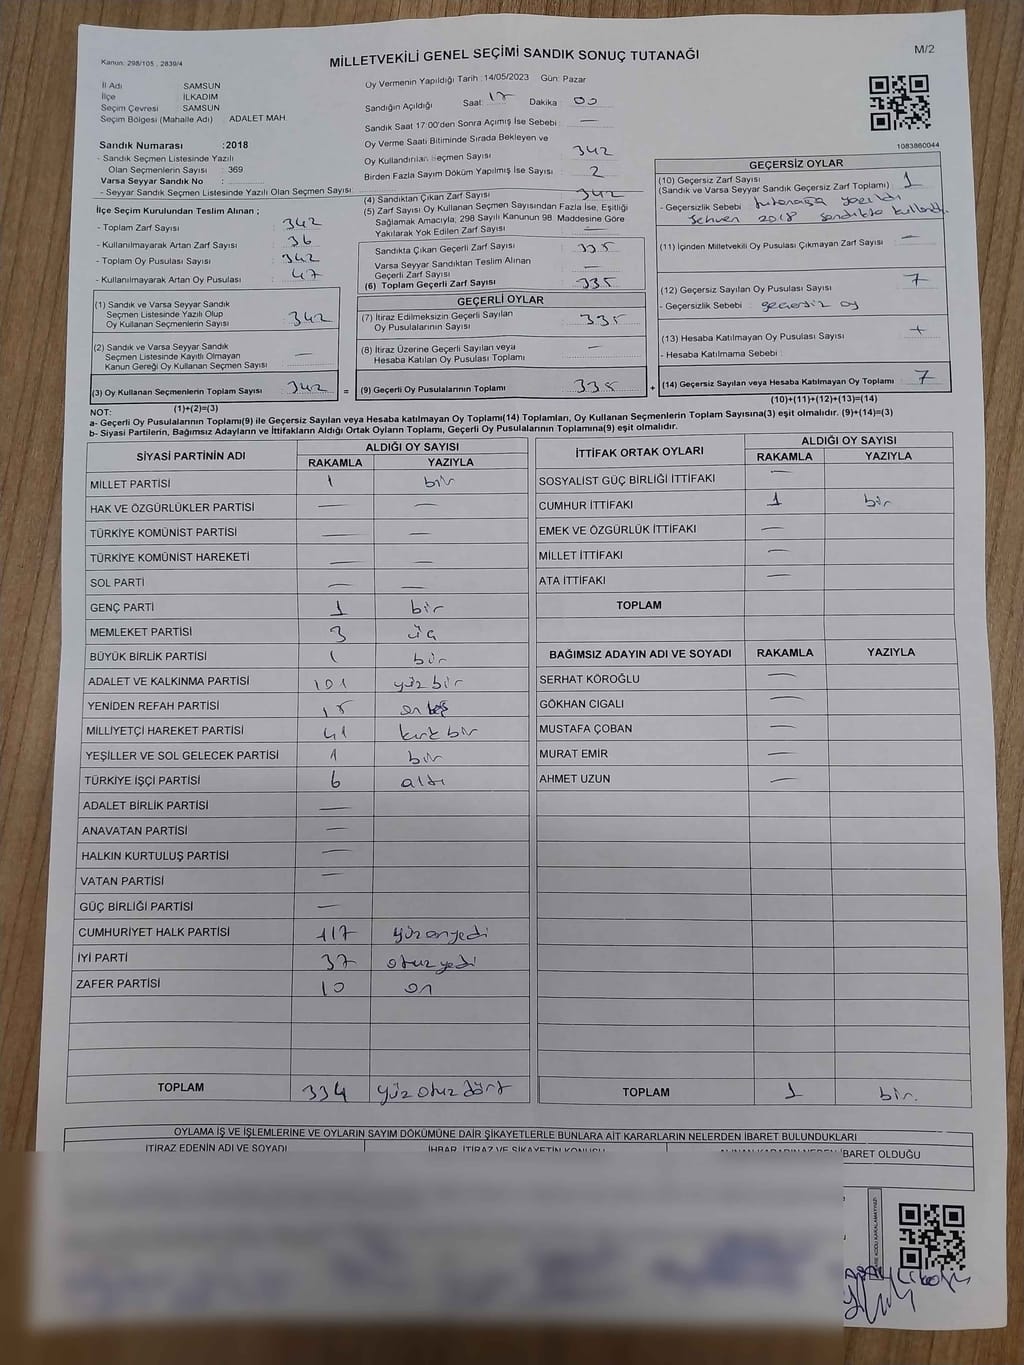 Kanun: 298/105 , 2839/4
MİLLETVEKİLİ GENEL SEÇİMİ SANDIK SONUÇ TUTANAĞI
M/2
İl Adı SAMSUN
İlçe İLKADIM
Seçim Çevresi SAMSUN
Seçim Bölgesi (Mahalle Adı) : ADALET MAH.
Sandık Numarası :2018
- Sandık Seçmen Listesinde Yazılı
Olan Seçmenlerin Sayısı : 369
Varsa Seyyar Sandık No :
- Seyyar Sandık Seçmen Listesinde Yazılı Olan Seçmen Sayısı:
Oy Vermenin Yapıldığı Tarih :14/05/2023 Gün: Pazar
Sandığın Açıldığı Saat: 17 Dakika : 00
Sandık Saat 17:00'den Sonra Açımış İse Sebebi : —
Oy Verme Saati Bitiminde Sırada Bekleyen ve
Oy Kullandırılan Seçmen Sayısı 342
Birden Fazla Sayım Döküm Yapılmış İse Sayısı : 2
1083860044
İlçe Seçim Kurulundan Teslim Alınan ;
- Toplam Zarf Sayısı : 342
- Kullanılmayarak Artan Zarf Sayısı : 36
- Toplam Oy Pusulası Sayısı : 342
- Kullanılmayarak Artan Oy Pusulası : 47
(1) Sandık ve Varsa Seyyar Sandık
Seçmen Listesinde Yazılı Olup
Oy Kullanan Seçmenlerin Sayısı : 342
(2) Sandık ve Varsa Seyyar Sandık
Seçmen Listesinde Kayıtlı Olmayan
Kanun Gereği Oy Kullanan Seçmen Sayısı : —
(3) Oy Kullanan Seçmenlerin Toplam Sayısı : 342 =
(1)+(2)=(3)
(4) Sandıktan Çıkan Zarf Sayısı : 342
(5) Zarf Sayısı Oy Kullanan Seçmen Sayısından Fazla İse, Eşitliği
Sağlamak Amacıyla; 298 Sayılı Kanunun 98. Maddesine Göre
Yakılarak Yok Edilen Zarf Sayısı : —
Sandıkta Çıkan Geçerli Zarf Sayısı : 335
Varsa Seyyar Sandıktan Teslim Alınan
Geçerli Zarf Sayısı : —
(6) Toplam Geçerli Zarf Sayısı : 335
GEÇERLİ OYLAR
(7) İtiraz Edilmeksizin Geçerli Sayılan
Oy Pusulalarının Sayısı : 335
(8) İtiraz Üzerine Geçerli Sayılan veya
Hesaba Katılan Oy Pusulası Toplamı : —
(9) Geçerli Oy Pusulalarının Toplamı : 335 +
GEÇERSİZ OYLAR
(10) Geçersiz Zarf Sayısı : 1
(Sandık ve Varsa Seyyar Sandık Geçersiz Zarf Toplamı)
- Geçersizlik Sebebi : tutanağa yazıldı
2018
(11) İçinden Milletvekili Oy Pusulası Çıkmayan Zarf Sayısı : —
(12) Geçersiz Sayılan Oy Pusulası Sayısı : 7
- Geçersizlik Sebebi : geçersiz oy
(13) Hesaba Katılmayan Oy Pusulası Sayısı : +
- Hesaba Katılmama Sebebi :
(14) Geçersiz Sayılan veya Hesaba Katılmayan Oy Toplamı : 7
(10)+(11)+(12)+(13)=(14)
NOT:
a- Geçerli Oy Pusulalarının Toplamı(9) ile Geçersiz Sayılan veya Hesaba katılmayan Oy Toplamı(14) Toplamları, Oy Kullanan Seçmenlerin Toplam Sayısına(3) eşit olmalıdır. (9)+(14)=(3)
b- Siyasi Partilerin, Bağımsız Adayların ve İttifakların Aldığı Ortak Oyların Toplamı, Geçerli Oy Pusulalarının Toplamına(9) eşit olmalıdır.
SİYASİ PARTİNİN ADI ALDIĞI OY SAYISI
RAKAMLA YAZIYLA
MİLLET PARTİSİ 1 bir
HAK VE ÖZGÜRLÜKLER PARTİSİ — —
TÜRKİYE KOMÜNİST PARTİSİ — —
TÜRKİYE KOMÜNİST HAREKETİ — —
SOL PARTİ — —
GENÇ PARTİ 1 bir
MEMLEKET PARTİSİ 3 üç
BÜYÜK BİRLİK PARTİSİ 1 bir
ADALET VE KALKINMA PARTİSİ 101 yüz bir
YENİDEN REFAH PARTİSİ 15 on beş
MİLLİYETÇİ HAREKET PARTİSİ 41 kırk bir
YEŞİLLER VE SOL GELECEK PARTİSİ 1 bir
TÜRKİYE İŞÇİ PARTİSİ 6 altı
ADALET BİRLİK PARTİSİ —
ANAVATAN PARTİSİ —
HALKIN KURTULUŞ PARTİSİ —
VATAN PARTİSİ —
GÜÇ BİRLİĞİ PARTİSİ —
CUMHURİYET HALK PARTİSİ 117 yüz onyedi
İYİ PARTİ 37 otuz yedi
ZAFER PARTİSİ 10 on
TOPLAM 334 yüz otuz dört
İTTİFAK ORTAK OYLARI ALDIĞI OY SAYISI
RAKAMLA YAZIYLA
SOSYALİST GÜÇ BİRLİĞİ İTTİFAKI —
CUMHUR İTTİFAKI 1 bir
EMEK VE ÖZGÜRLÜK İTTİFAKI —
MİLLET İTTİFAKI —
ATA İTTİFAKI —
TOPLAM
BAĞIMSIZ ADAYIN ADI VE SOYADI RAKAMLA YAZIYLA
SERHAT KÖROĞLU —
GÖKHAN CIGALI —
MUSTAFA ÇOBAN —
MURAT EMİR —
AHMET UZUN —
TOPLAM 1 bir.
OYLAMA İŞ VE İŞLEMLERİNE VE OYLARIN SAYIM DÖKÜMÜNE DAİR ŞİKAYETLERLE BUNLARA AİT KARARLARIN NELERDEN İBARET BULUNDUKLARI
İTİRAZ EDENİN ADI VE SOYADI İHBAR, İTİRAZ VE ŞİKAYETİN KONUSU ALINAN KARARIN NEDEN İBARET OLDUĞU